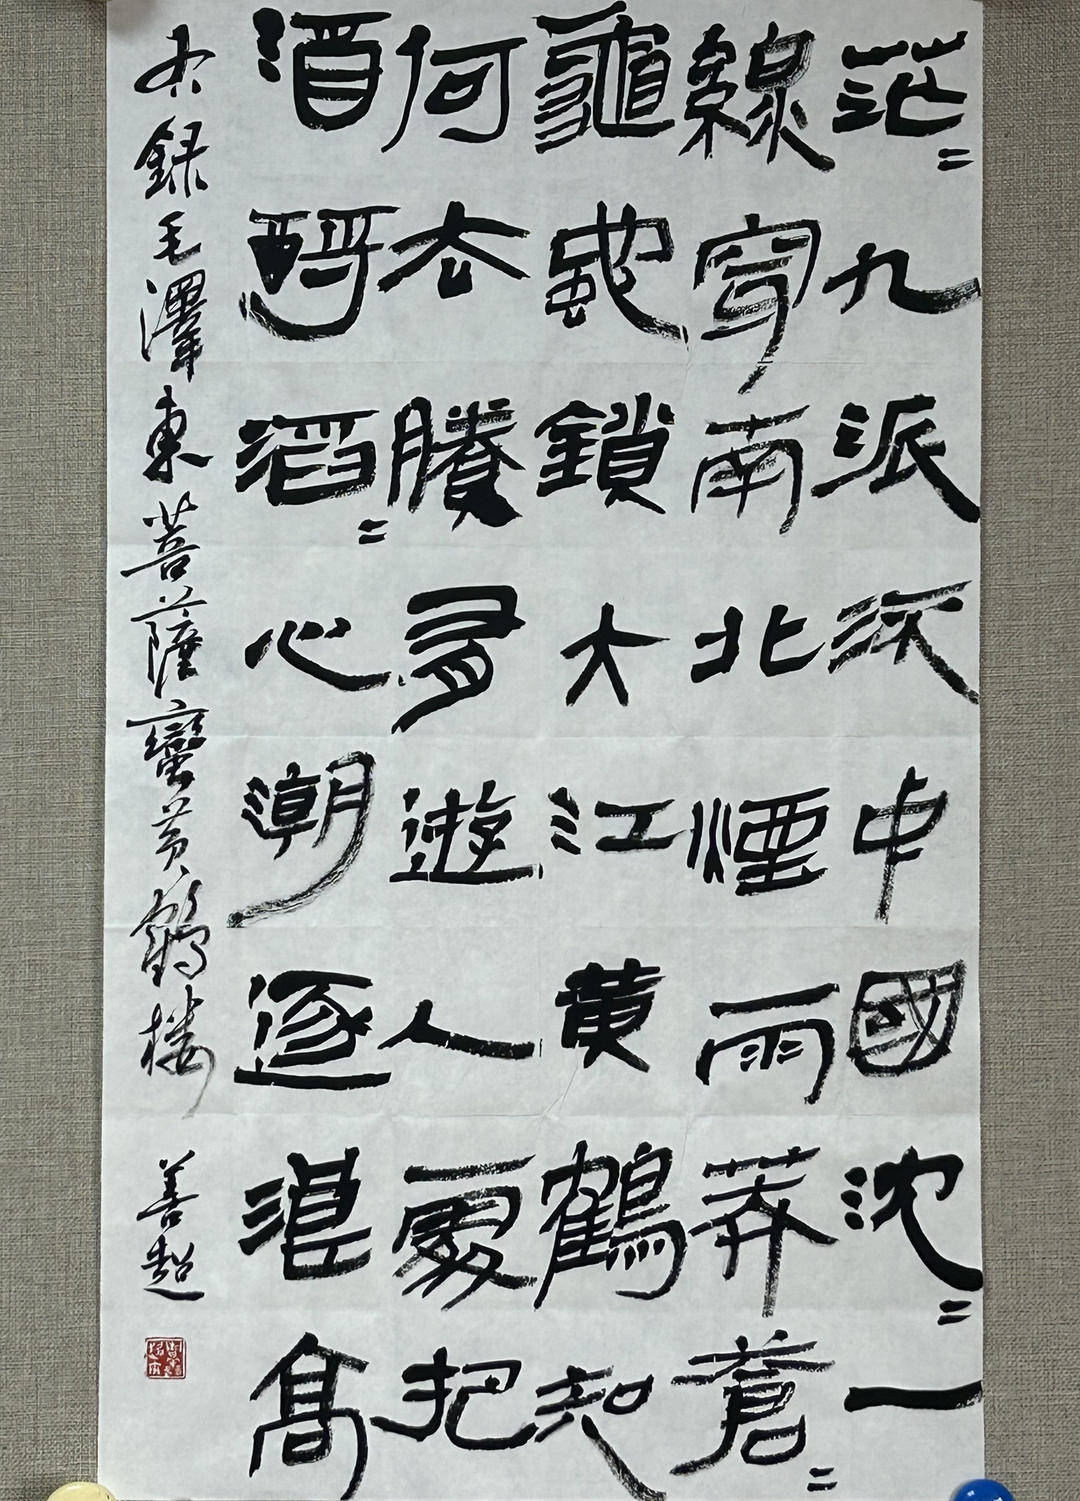 茫〻九派流中國沈〻一
線穿南北煙雨莽蒼〻
龜蛇鎖大江黃鶴知
何去賸有遊人處把
酒酹滔〻心潮逐浪高
右録毛澤東菩薩蠻黃鶴楼 善超